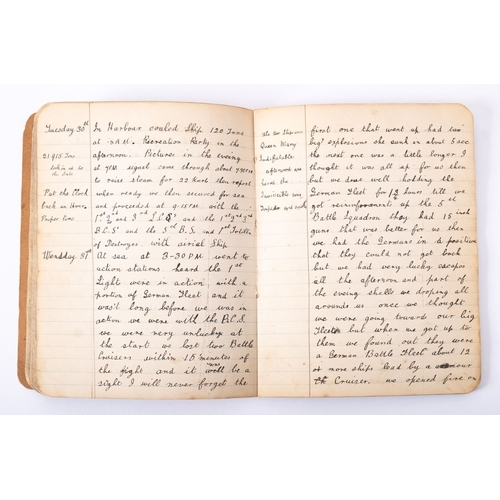 Tuesday 30th
21915 Tons
taken in to
the date
Put the Clock
back an Hour
Proper time
Wensday 31st
In Harbour coaled Ship 120 Tons
at A.M. Recreation Party in the
afternoon. Pictures in the evening
at 7PM signal came through about 7.30PM
to raise steam for 22 knots then report
when ready we then secured for sea
and proceeded at 9.15PM with the
1st 2nd and 3rd L.C.S and the 1st 2nd 3rd
B.C.S and the 5th B.S. and 1st Flotilla
of Destroyers. with aerial Ship
At sea at 3-30 PM went to
action stations heard the 1st
Light were in action with a
portion of German Fleet and it
was't long before we was in
action we were with the B.C.S.
we were very unlucky at
the start we lost two Battle
Cruisers within 15 minutes of
the fight and it was be a
sight I will never forget the
the two Ships were
Queen Mary
Indifatiable
afternoon we
heard the
Invincible was
first one that went up had two
big explosions she sunk in about 5 sec
the next one was a little longer I
thought it was all up for us then
but we done well holding the
German Fleet for 1½ hours till we
got reinforcements up the 5th
Battle Squadron they had 15 inch
guns that was better for us then
we had the Germans in a position
that they could not get back
but we had very lucky escapes
all the afternoon and part of
the evening shells were droping all
around us once we thought
we were going toward our big
Fleet but when we got up to
them we found out they were
a German Battle Fleet about 12
or more ships lead by a
Cruiser. we opened fire on